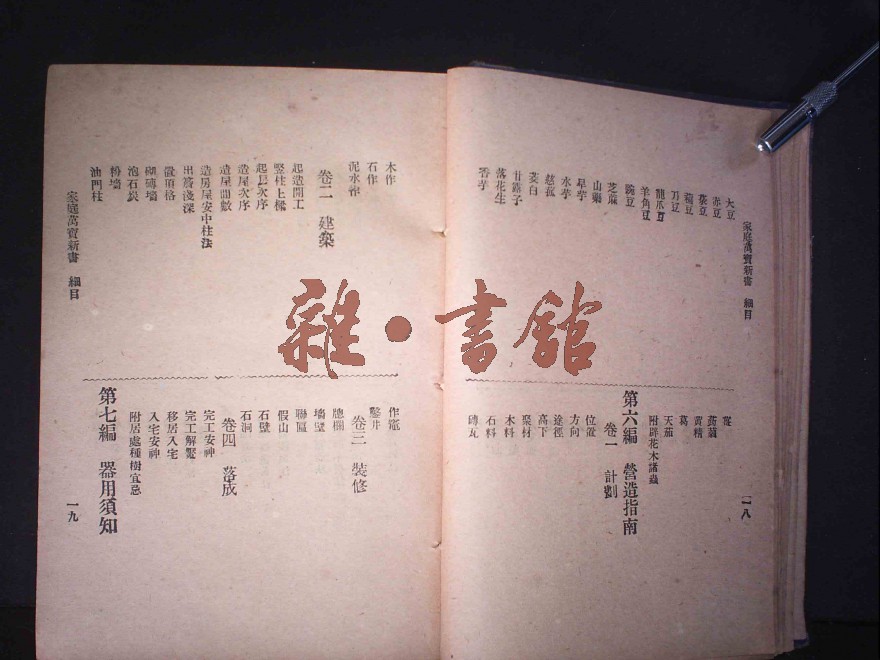 家庭萬寶新書 細目
一八
大豆
赤豆
菉豆
稨豆
刀豆
龍爪豆
羊角豆
豌豆
芝蔴
山藥
旱芋
水芋
慈菰
茭白
甘露子
落花生
香芋
黃精
葛
天茄
附辟花木諸蟲
第六編 營造指南
卷一 計劃
位置
方向
途徑
高下
聚材
木料
石料
磚瓦
木作
石作
泥水作
卷二 建築
起造開工
豎柱上樑
起工次序
造屋次序
造屋間數
造房屋安中柱法
出簷淺深
置頂格
砌磚墻
泡石炭
粉墻
油門柱
作竈
鑿井
卷三 裝修
牕欄
墻壁
聯匾
假山
石壁
石洞
卷四 落成
完工安神
完工解魘
移居入宅
入宅安神
附居處種樹宜忌
第七編 器用須知
家庭萬寶新書 細目
一九
雜·書館